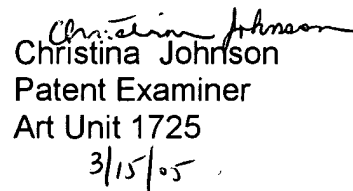 Christina Johnson
Christina Johnson
Patent Examiner
Art Unit 1725
3/15/05